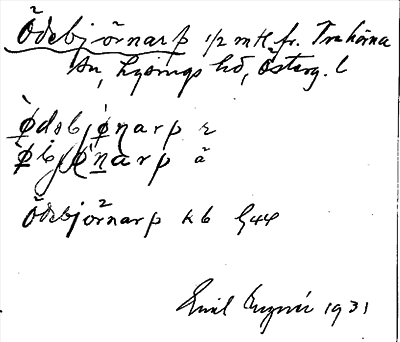 Ödebjörnarp 1/2 mtl. fr. Trehörna
sn, Lysings hd, Österg. l
ødəbjø̀ṇarp r
ø̀bjø̀ṇarp ä
Ödebjörnarp kb
Emil 1931